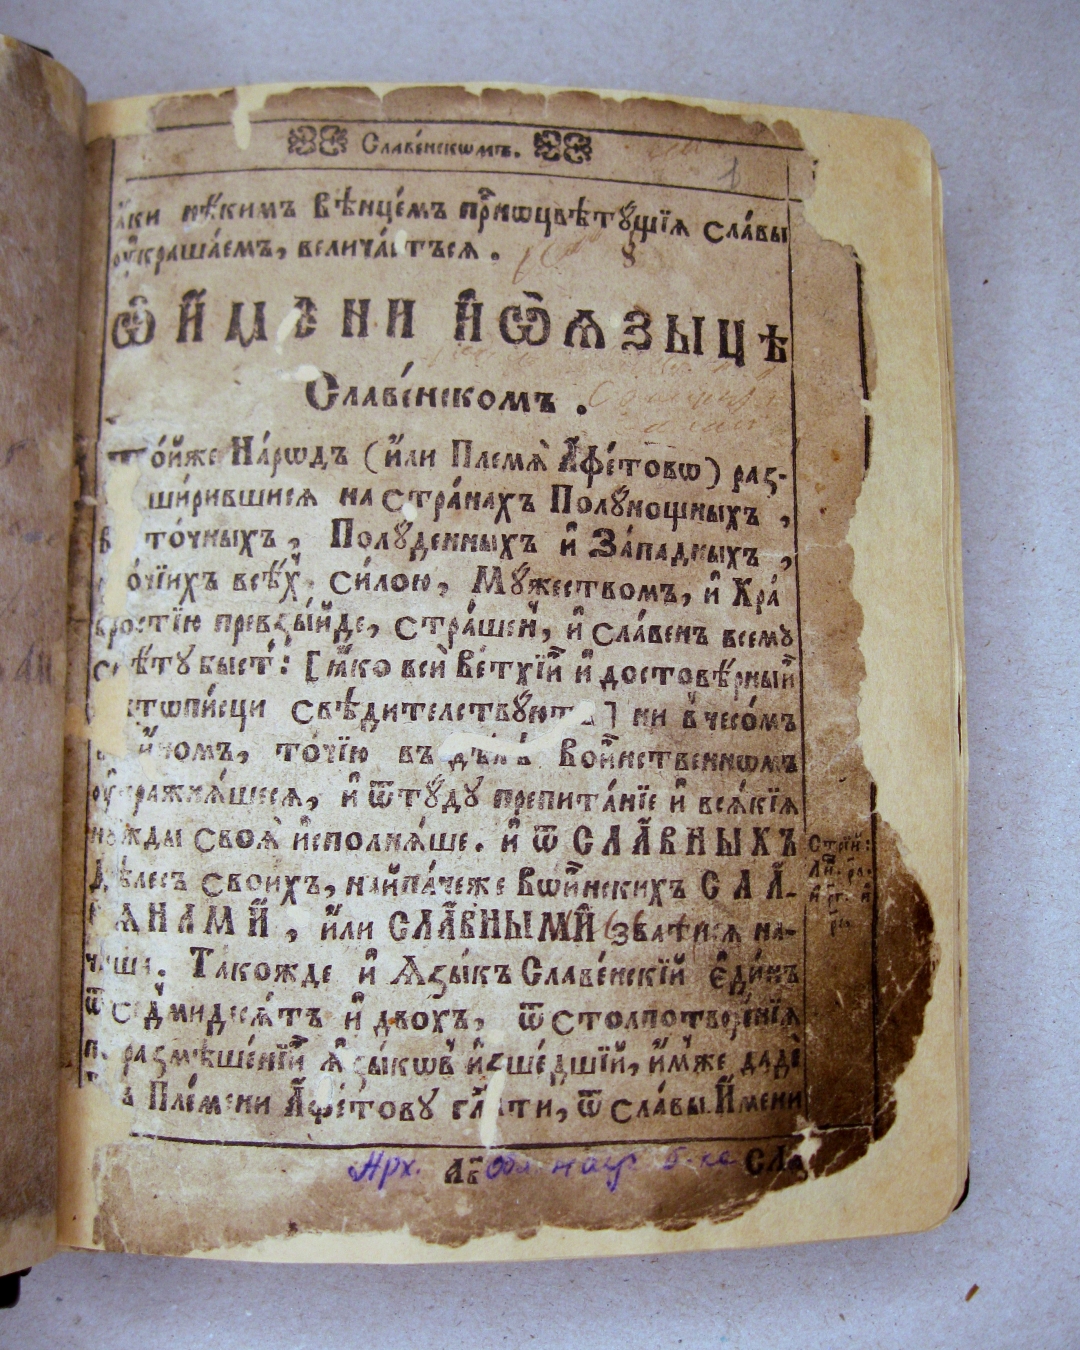 Славе́нскѡмъ.
ꙗ҆́ки нѣ́кимъ вѣнце́мъ при̑ѡцвѣтꙋ́щїѧ сла́вы
ᲂу҆краша́емъ, велича́етъсѧ.
Ѽ И҆́МЕНИ И҆ Ѽ Ѧ҆ЗЫЦѢ
Славе́нском.
То́йже На́рѡдъ (и҆́ли Пле́мѧ А҆фе́товѡ) раз-
ши́рившисѧ на стра́нахъ Полꙋ́нощныхъ,
во́сточныхъ, Полꙋ́денныхъ и҆ За́падныхъ,
про́чїихъ всѣ́х, си́лою, Мꙋ́жествомъ, и҆ Хра́
бростїю превзы́йде, стра́шен, и҆ сла́венъ всемꙋ
свѣ́тꙋ бысть: [ꙗ҆́ко вси Ве́тхїи и҆ достовѣ́рный
лѣтѡпи́сци свѣди́телствꙋютъ] ни в̾чесо́мъ
и҆́номъ, то́чїю въ дѣ́лѣ Во́инственнѡмъ
ᲂу҆пражнѧ́шесѧ, и҆ ѿтꙋ́дꙋ препита́нїе и҆ всѧ́кїѧ
нꙋ́жды своѧ̀ и҆сполнѧ́ше. и҆ ѿ СЛА́ВНЫХЪ
Дѣ́лесъ свои́хъ, найпа́чеже Вѡ́инскихъ СЛА-
ВѦНАМИ, и҆́ли СЛА́ВНЫМИ зва́тисѧ на-
чаша. Тако́жде и҆ Ѧ҆зы́къ Славе́нскїй є҆ди́нъ
ѿ се́дмидесѧ́тъ и҆ двохъ, ѿ столпотворе́нїѧ
размѣше́нїи ѧ҆зы́кѡв и҆зше́дшїй, и҆́мже дадѐ
Пле́мени А҆фе́товꙋ гл҃ати, ѿ сла́вы И҆́мени
Арх. Обл науч б-ка
СЛА